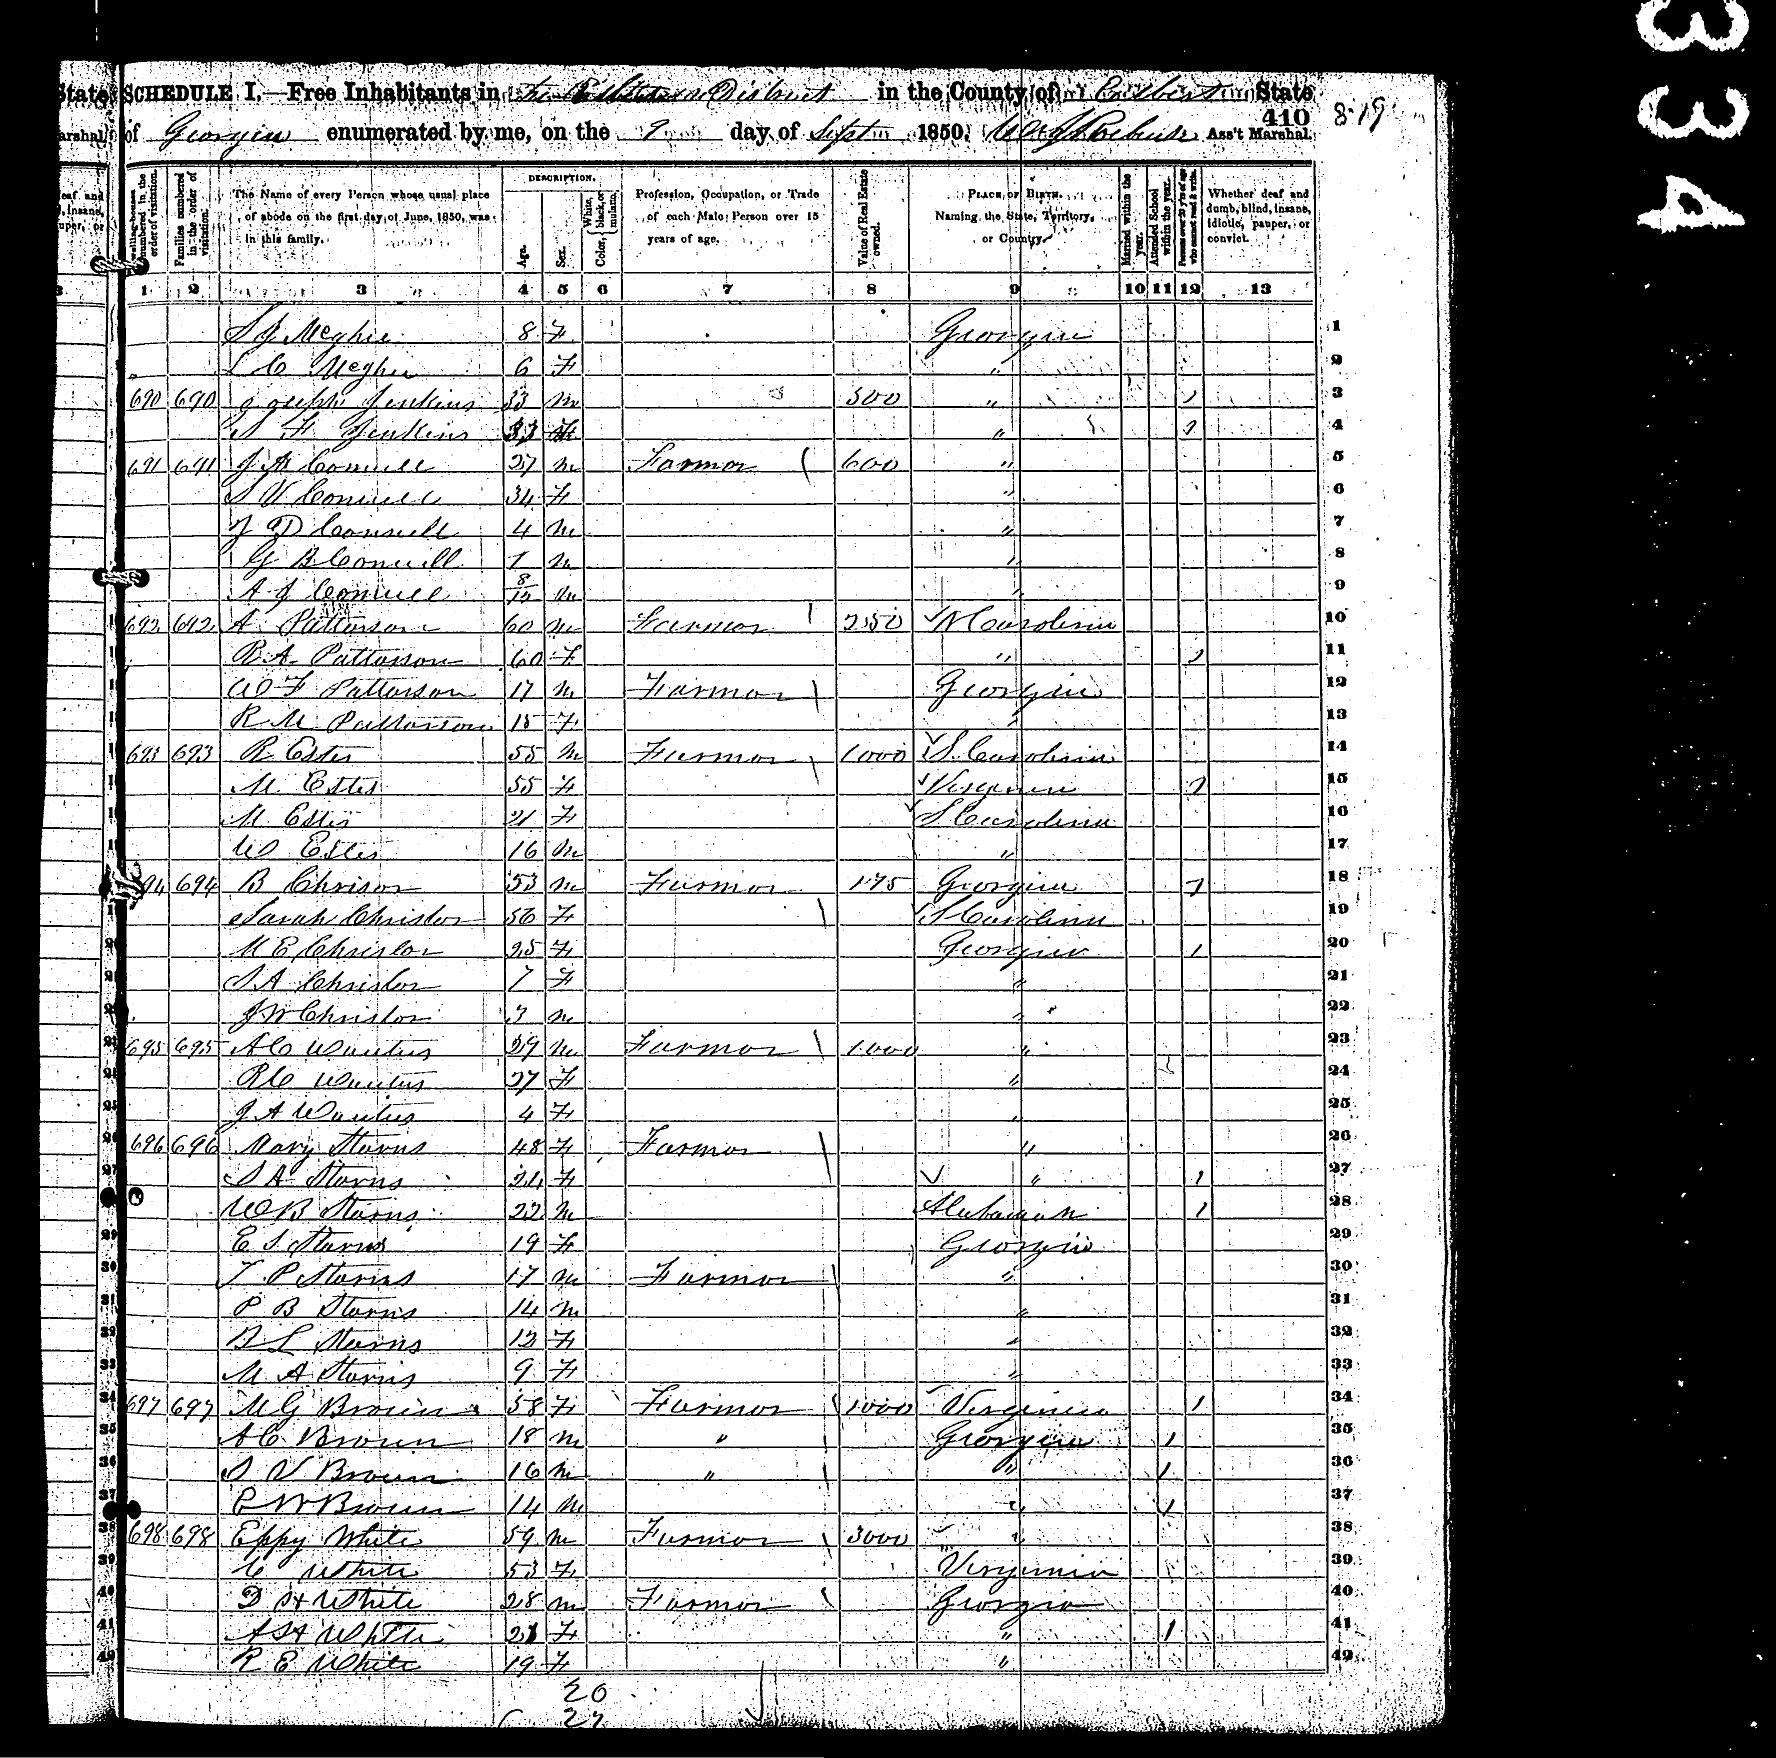 State SCHEDULE I.—Free Inhabitants in District in the County of Elbert State
Marshal. of Georgia enumerated by me, on the 9 day of Sept 1850. Ass't Marshal.
410 819
Dwelling-houses numbered in the order of visitation.
Families numbered in the order of visitation.
The Name of every Person whose usual place of abode on the first day of June, 1850, was in this family.
DESCRIPTION.
Age.
Sex.
Color, White, black, or mulatto.
Profession, Occupation, or Trade of each Male Person over 15 years of age.
Value of Real Estate owned.
PLACE OF BIRTH. Naming the State, Territory, or Country.
Married within the year.
Attended School within the year.
Persons over 20 y'rs of age who cannot read & write.
Whether deaf and dumb, blind, insane, idiotic, pauper, or convict.
1 2 3 4 5 6 7 8 9 10 11 12 13
S J McGhee 8 F Georgia 1
S C McGhee 6 F " 2
690 690 Joseph Jenkins 33 M 500 " 1 3
S F Jenkins 33 F " 1 4
691 691 J A Cornell 27 M Farmor 600 " 5
S V Cornell 34 F " 6
J D Cornell 4 M " 7
G B Cornell 1 M " 8
A J Cornell 8/12 M " 9
692 692 A Pattorson 60 M Farmor 250 N Carolina 10
R A Pattorson 60 F " 1 11
W F Pattorson 17 M Farmor Georgia 12
R M Pattorson 15 F " 13
693 693 R Estes 55 M Farmor 1000 S. Carolina 14
M. Estes 55 F Virginia 1 15
M Estes 21 F S Carolina 16
W Estes 16 M " 17
694 694 B Chrisor 53 M Farmor 175 Georgia 1 18
Sarah Christor 56 F S Carolina 19
M E Christor 25 F Georgia 1 20
S A Christor 7 F " 21
J W Christor 3 M " 22
695 695 A C 29 M Farmor 1000 " 23
R C 27 F " 24
J A 4 F " 25
696 696 Mary Starns 48 F Farmor " 26
S A Starns 24 F " 1 27
W B Starns 22 M Alabamah 1 28
E S Starns 19 F Georgia 29
T P Starns 17 M Farmor " 30
P B Starns 14 M " 31
B L Starns 12 F " 32
M A Starns 9 F " 33
697 697 M G Brown 58 F Farmor 1000 Virginia 1 34
A C Brown 18 M " Georgia 1 35
S V Brown 16 M " " 1 36
E W Brown 14 M " 1 37
698 698 Eppy White 59 M Farmor 3000 " 38
C White 53 F Virginia 39
D H White 28 M Farmor Georgia 40
A H White 21 F " 1 41
R E White 19 F " 42
20
27